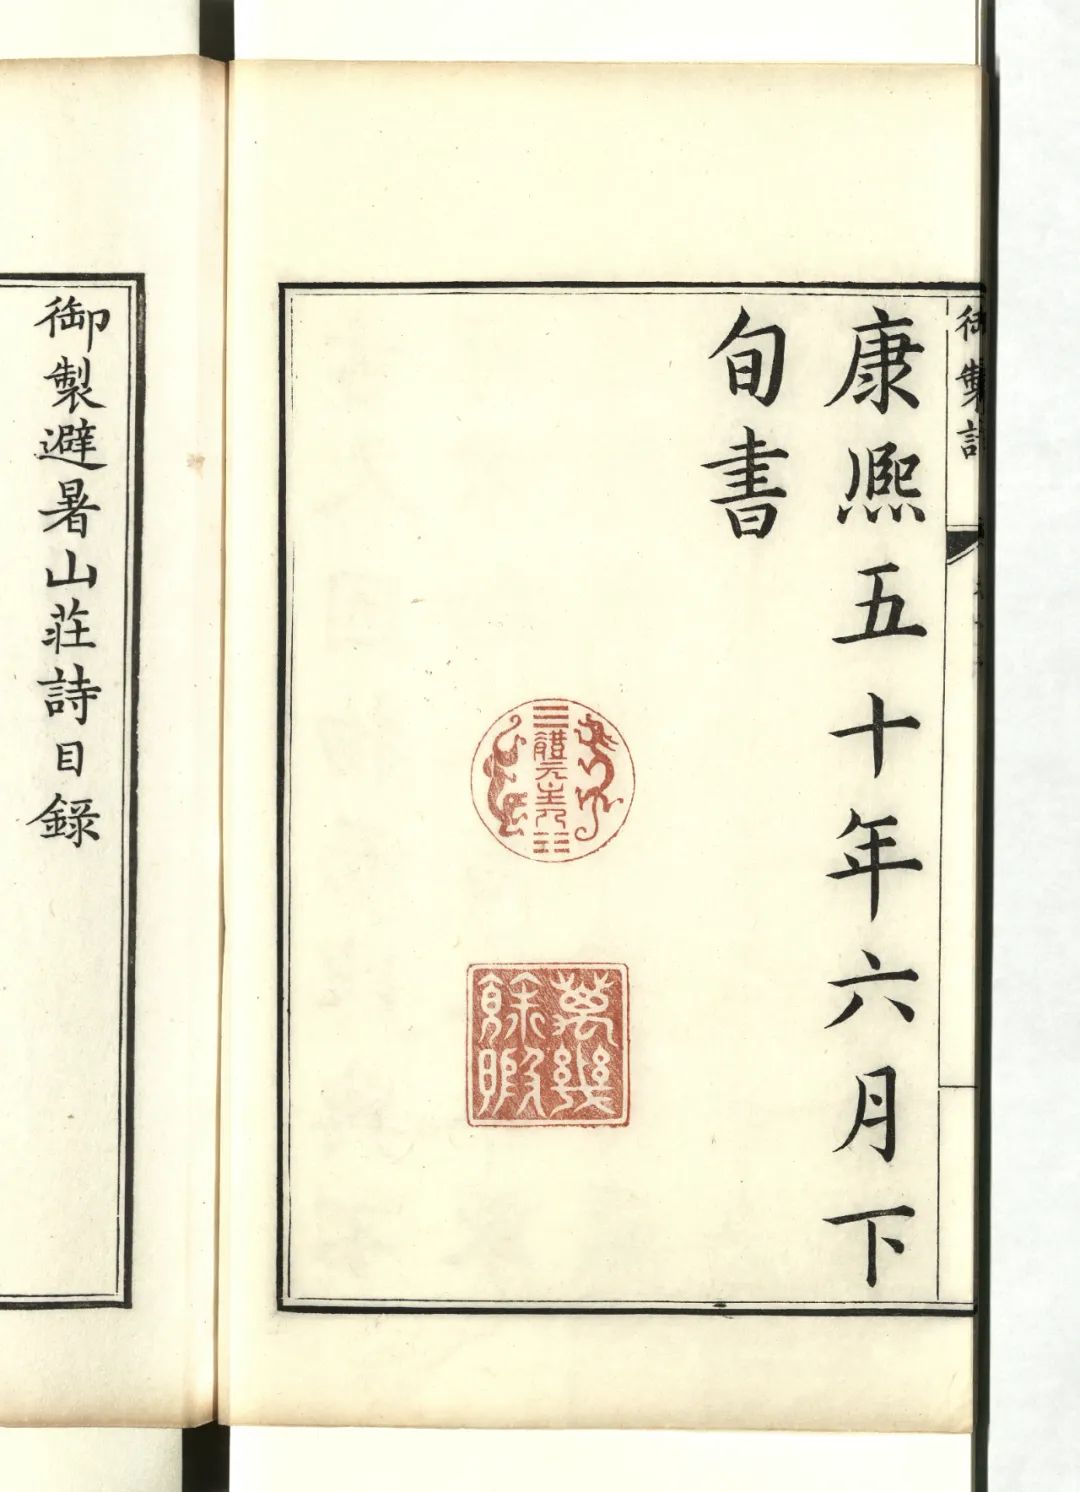 御製詩
康熙五十年六月下
旬書
體元主人
萬幾
餘暇
御製避暑山莊詩目錄